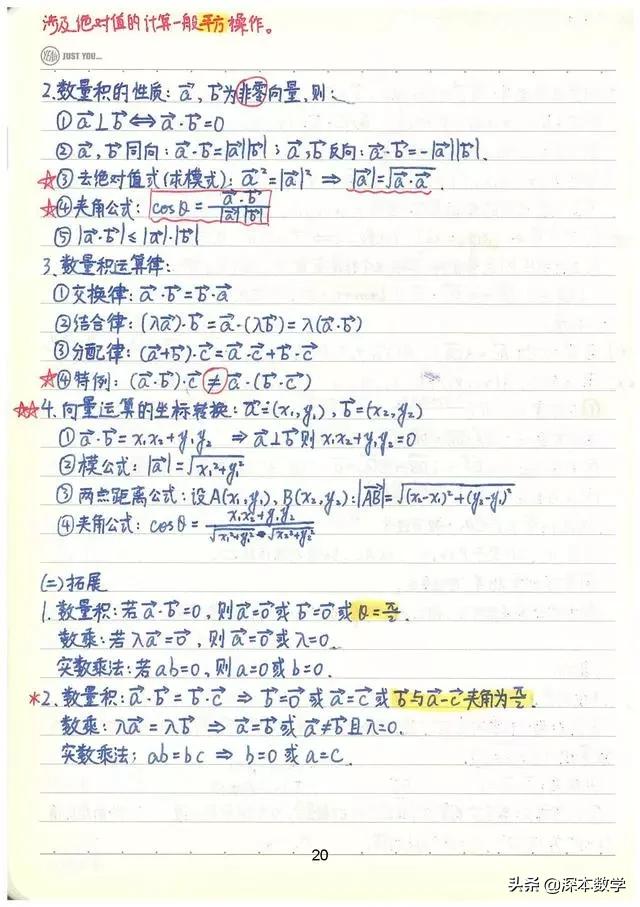 涉及绝对值的计算一般平方操作。
JUST YOU...
2.数量积的性质：a⃗，b⃗为非零向量，则：
①a⃗⊥b⃗⟺a⃗·b⃗=0
②a⃗，b⃗同向：a⃗·b⃗=|a⃗||b⃗|；a⃗，b⃗反向：a⃗·b⃗=-|a⃗||b⃗|.
☆③去绝对值式(求模式)：a⃗²=|a⃗|² ⇒ |a⃗|=√(a⃗·a⃗)
☆④夹角公式：cosθ=a⃗·b⃗/|a⃗||b⃗|
⑤|a⃗·b⃗|≤|a⃗|·|b⃗|
3.数量积运算律：
①交换律：a⃗·b⃗=b⃗·a⃗
②结合律：(λa⃗)·b⃗=a⃗·(λb⃗)=λ(a⃗·b⃗)
③分配律：(a⃗+b⃗)·c⃗=a⃗·c⃗+b⃗·c⃗
☆④特例：(a⃗·b⃗)·c⃗≠a⃗·(b⃗·c⃗)
☆☆4.向量运算的坐标转换：a⃗=(x₁,y₁)，b⃗=(x₂,y₂)
①a⃗·b⃗=x₁x₂+y₁y₂ ⇒a⃗⊥b⃗则x₁x₂+y₁y₂=0
②模公式：|a⃗|=√(x₁²+y₁²)
③两点距离公式：设A(x₁,y₁)，B(x₂,y₂)：|AB⃗|=√((x₂-x₁)²+(y₂-y₁)²)
④夹角公式：cosθ=(x₁x₂+y₁y₂)/(√(x₁²+y₁²)·√(x₂²+y₂²))
(二)拓展
1.数量积：若a⃗·b⃗=0，则a⃗=0⃗或b⃗=0⃗或θ=π/2.
数乘：若λa⃗=0⃗，则a⃗=0⃗或λ=0.
实数乘法：若ab=0，则a=0或b=0.
*2.数量积：a⃗·b⃗=b⃗·c⃗ ⇒ b⃗=0⃗或a⃗=c⃗或b⃗与a⃗-c⃗夹角为π/2.
数乘：λa⃗=λb⃗ ⇒ a⃗=b⃗或a⃗≠b⃗且λ=0.
实数乘法：ab=bc ⇒ b=0或a=c.
20
头条@深本数学